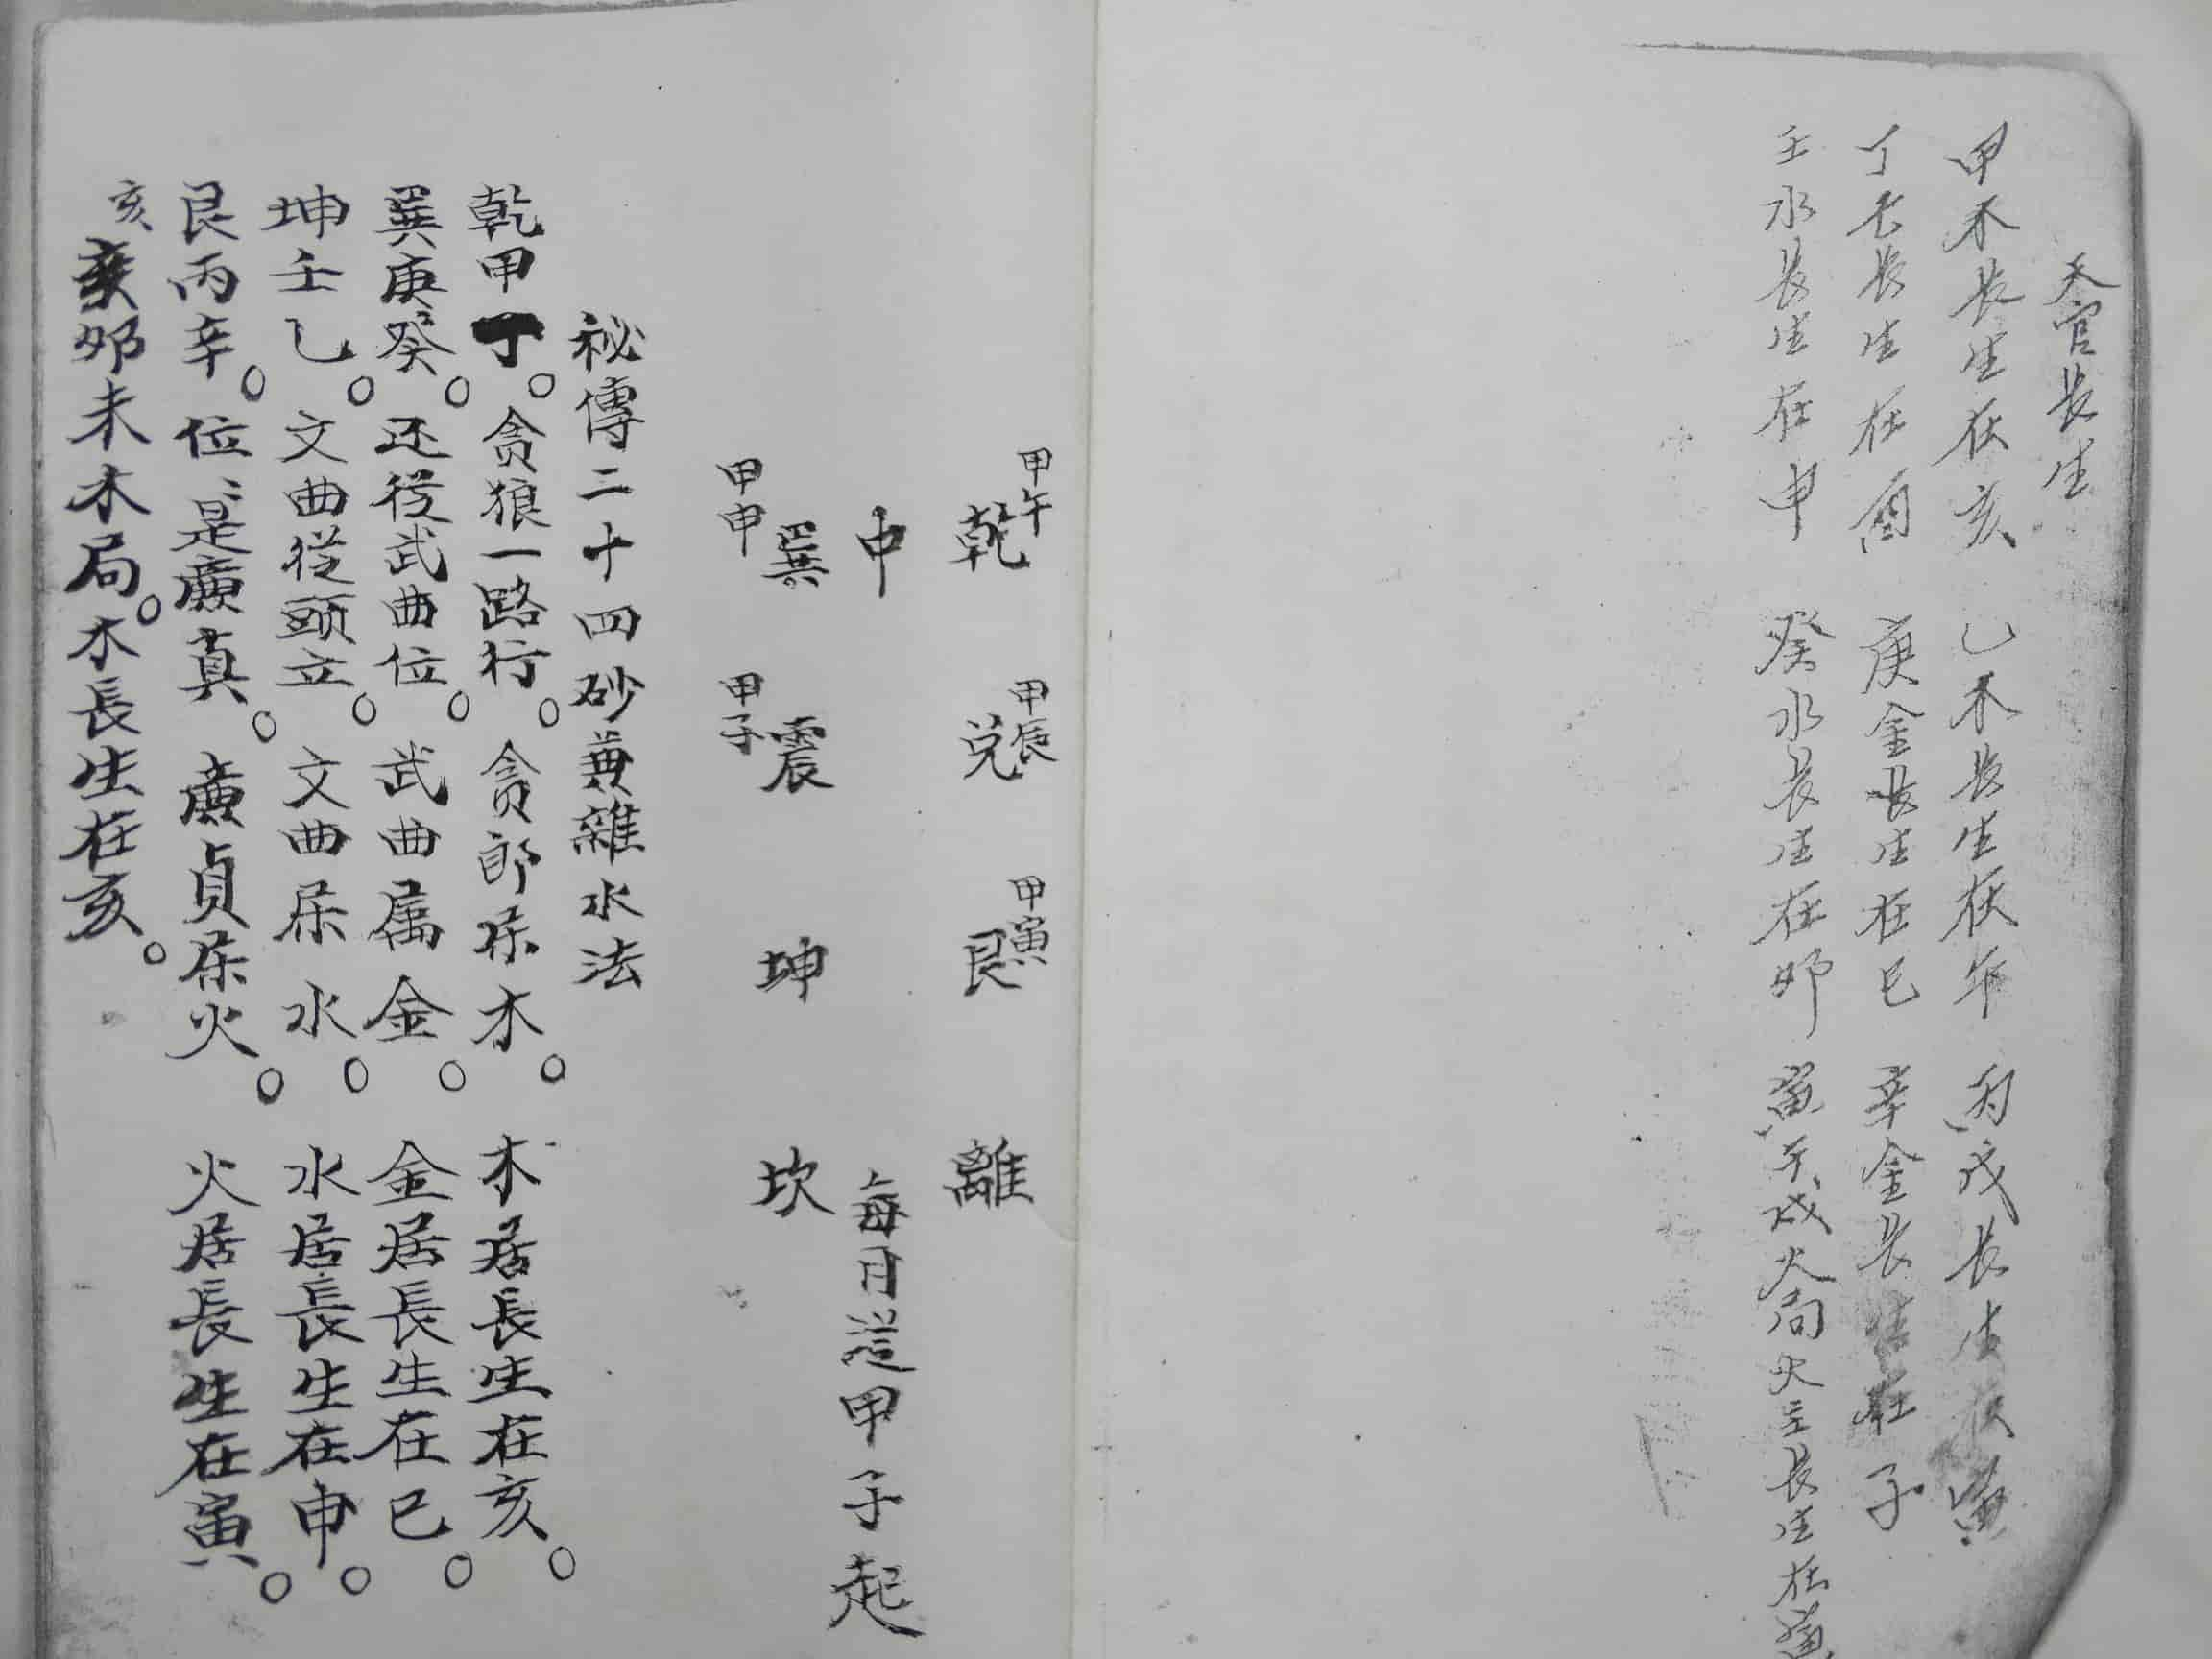 天官長生
甲木長生在亥 乙木長生在午 丙戊長生在寅
丁 長生在酉 庚金長生在巳 辛金長生在子
壬水長生在申 癸水長生在卯 寅午戌火局火 長生在寅
甲午 甲辰 甲寅
乾 兌 艮 離
中 每日從甲子起
巽 震 坤 坎
甲申 甲子
祕傳二十四砂兼雜水法
乾甲丁。貪狼一路行。貪郎属木。木居長生在亥。
巽庚癸。还從武曲位。武曲属金。金居長生在巳。
坤壬乙。文曲從頭立。文曲属水。水居長生在申。
艮丙辛。位位是廣真。廣貞属火。火居長生在寅。
亥
亥卯未木局。木長生在亥。